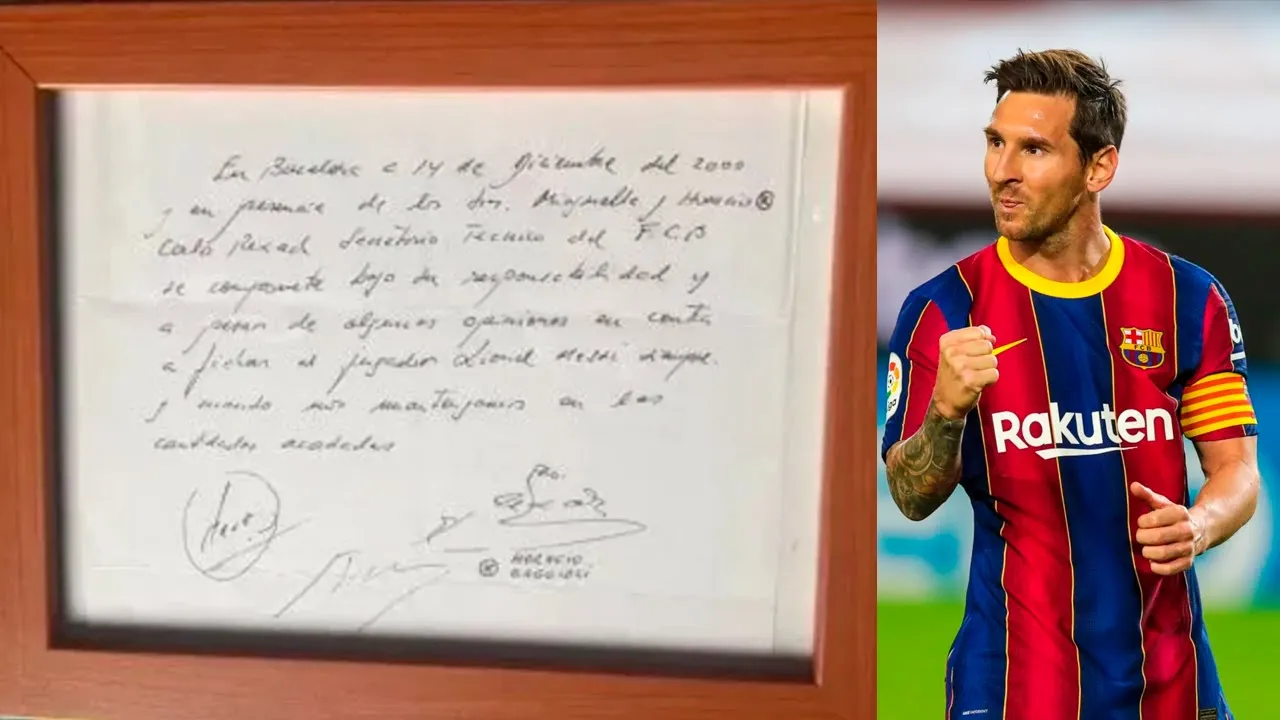 En Barcelona a 14 de Diciembre del 2000
y en presencia de los Srs. Minguella y Horacio
Carles Rexach Secretario Tecnico del F.C.B
se compromete bajo su responsabilidad y
a pesar de algunas opiniones en contra
a fichar al jugador Lionel Messi siempre.
y cuando nos mantengamos en las
cantidades acordadas
HORACIO
GAGGIOLI
FCB
Rakuten